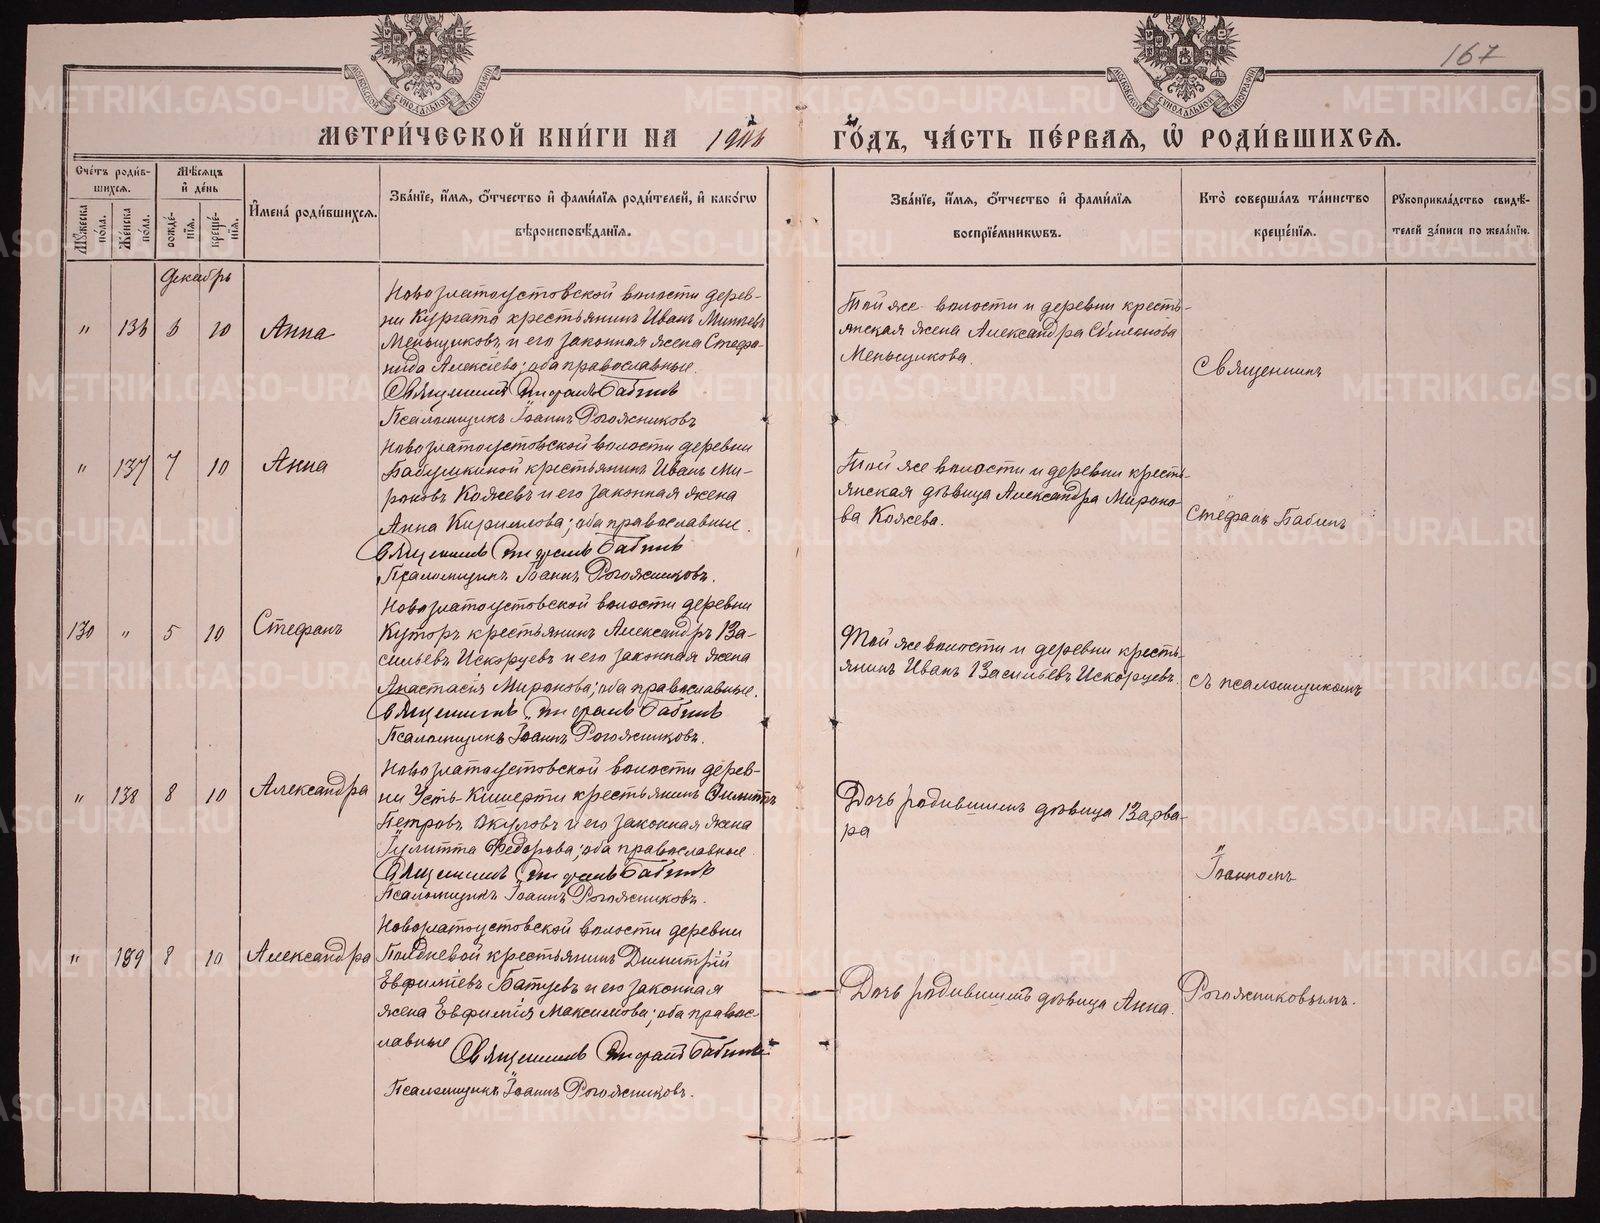 167
МОСКОВСКОЙ СѴНОДАЛЬНОЙ ТИПОГРАФІИ
МОСКОВСКОЙ СѴНОДАЛЬНОЙ ТИПОГРАФІИ
МЕТРИ́ЧЕСКОЙ КНИ́ГИ НА
ГО́ДЪ, ЧА́СТЬ ПЕ́РВАѦ, Ѡ҆ РОДИ́ВШИХСѦ.
Сче́тъ роди́в-
шихсѧ.
Мѣ́сѧцъ
и҆ де́нь
Мꙋ́жеска
по́ла.
Же́нска
по́ла.
рожде́-
нїѧ.
креще́-
нїѧ.
И҆мена̀ роди́вшихсѧ.
Зва́нїе, и҆́мѧ, ѻ҆́тчество и҆ фами́лїѧ роди́телей, и҆ како́гѡ
вѣроисповѣ́данїѧ.
Зва́нїе, и҆́мѧ, ѻ҆́тчество и҆ фами́лїѧ
воспрїе́мникѡвъ.
Кто̀ соверша́лъ та́инство
креще́нїѧ.
Рꙋкоприкла́дство свидѣ́-
телей за́писи по жела́нїю.
Декабрь
" 136 6 10 Анна
Новозлатоустовской волости дерев-
ни Кургата крестьянинъ Иванъ
Меньщиковъ и его законная жена Стефа-
нида Алексіева; оба православные.
Священникъ Стефанъ Бабинъ
Псаломщикъ Іоаннъ Рогожниковъ
Той же волости и деревни кресть-
янская жена Александра Симеонова
Меньщикова.
Священникъ
" 137 7 10 Анна
Новозлатоустовской волости деревни
Бабушкиной крестьянинъ Иванъ Ми-
роновъ Кожевъ и его законная жена
Анна Кириллова; оба православные.
Священникъ Стефанъ Бабинъ
Псаломщикъ Іоаннъ Рогожниковъ.
Той же волости и деревни кресть-
янская дѣвица Александра Мироно-
ва Кожева.
Стефанъ Бабинъ
130 " 5 10 Стефанъ
Новозлатоустовской волости деревни
Куторъ крестьянинъ Александръ Ва-
сильевъ Искорцевъ и его законная жена
Анастасія Миронова; оба православные.
Священникъ Стефанъ Бабинъ
Псаломщикъ Іоаннъ Рогожниковъ.
Той же волости и деревни кресть-
янинъ Иванъ Васильевъ Искорцевъ.
съ псаломщикомъ
" 138 8 10 Александра
Новозлатоустовской волости дерев-
ни Усть-Кишерти крестьянинъ
Петровъ Окуловъ и его законная жена
Іулитта Федорова; оба православные.
Священникъ Стефанъ Бабинъ
Псаломщикъ Іоаннъ Рогожниковъ.
Дочь родившихъ дѣвицаВарва-
ра
Іоанномъ
" 139 8 10 Александра
Новозлатоустовской волости деревни
Полдневой крестьянинъ Димитрій
Евфиміевъ Батуевъ и его законная
жена Евфимія Максимова; оба правос-
лавные
Священникъ Стефанъ Бабинъ
Псаломщикъ Іоаннъ Рогожниковъ.
Дочь родившихъ дѣвица Анна.
Рогожниковымъ.
METRIKI.GASO-URAL.RU